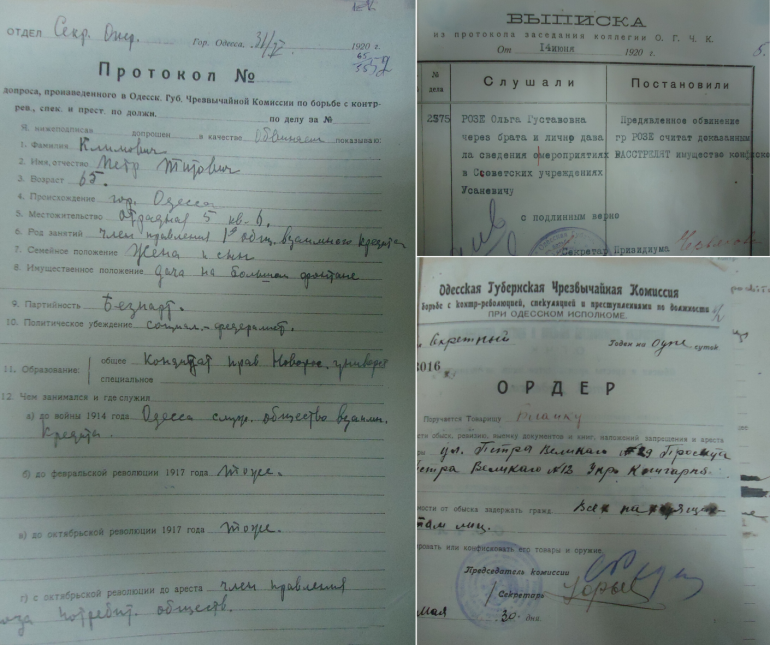 ОТДЕЛ Секр. Опер.
Гор. Одесса, 31/V 1920 г.
Протокол №
допроса, произведенного в Одесск. Губ. Чрезвычайной Комиссии по борьбе с контр-
рев., спек. и прест. по должн. по делу за №
Я, нижеподписав. допрошен в качестве показываю:
1. Фамилия Климович
2. Имя, отчество Петр Титович
3. Возраст 65.
4. Происхождение гор. Одесса
5. Местожительство Отрадная 5 кв. 6.
6. Род занятий член правления 1го общ. взаимного кредита
7. Семейное положение Жена и сын
8. Имущественное положение дача на большом фонтане
9. Партийность Безпарт.
10. Политическое убеждение социал.-федералист.
11. Образование: общее Кондидат прав Новорос. универс
специальное
12. Чем занимался и где служил
а) до войны 1914 года Одесса служ. общество взаимн.
кредита.
б) до февральской революции 1917 года тоже.
в) до октябрьской революции 1917 года тоже.
г) с октябрьской революции до ареста член правления
союза потребит. обществ.
ВЫПИСКА
из протокола заседания коллегии О. Г. Ч. К.
От 14июня 1920 г.
№ дела
Слушали
Постановили
2575
РОЗЕ Ольга Густавовна
через брата и лично дава
ла сведения омероприятиях
в Советских учреждениях
Усаневичу
Предявленное обвинение
гр РОЗЕ считат доказанным
РАССТРЕЛЯТ имущество конфиско
с подлинным верно
Секретар Призидиума
Одесская Губернская Чрезвычайная Комиссия
борьбе с контр-революцией, спекуляцией и преступлениями по должности
ПРИ ОДЕССКОМ ИСПОЛКОМЕ.
Секретный
Годен на одне сутки
3016
ОРДЕР
Поручается Товарищу
обыск, ревизию, выемку документов и книг, наложений запрещения и ареста
ул. Петра Великаго №29
Петра Великаго №12
ности от обыска задержать гражд. Всех
там лиц.
ировать или конфисковать его товары и оружие.
Председатель комиссии
Секретарь
мая 30 дня.